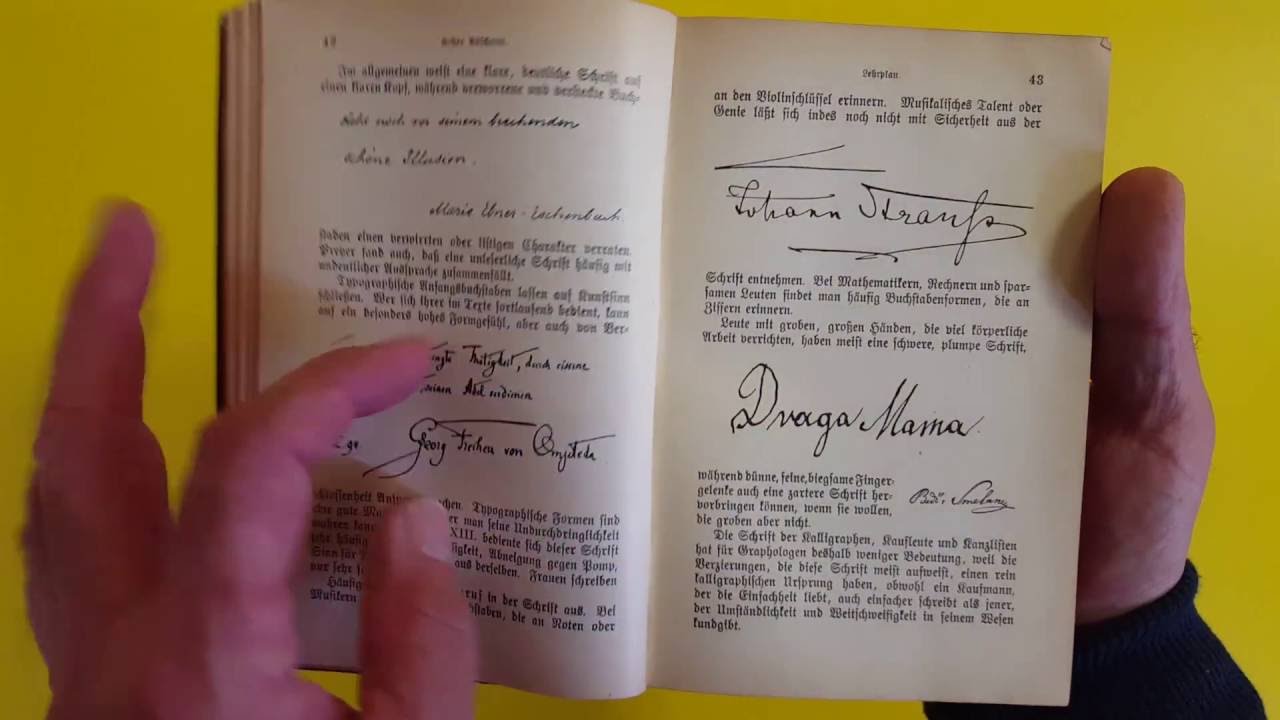 Im allgemeinen weist eine klare, deutliche Schrift auf
einen klaren Kopf, während verworrene und versteckte Buch-
noch vor seinem brechenden
schöne Illusion.
Marie Ebner-Eschenbach.
staben einen verwirrten oder listigen Charakter verraten.
Preyer fand auch, daß eine unleserliche Schrift häufig mit
undeutlicher Aussprache zusammenfällt.
Typographische Anfangsbuchstaben lassen auf Kunstsinn
schließen. Wer sich ihrer im Texte fortlaufend bedient, kann
auf ein besonders hohes Formgefühl, aber auch von Ver-
Thätigkeit, durch eiserne
seinen Adel verdienen
Georg Freiherr von Ompteda
schlossenheit
Typographische Formen sind
gute man seine Undurchdringlichkeit
XIII. bediente sich dieser Schrift
häufig Abneigung gegen Pomp,
Sinn für aus derselben. Frauen schreiben
nur sehr
Häufig in der Schrift aus. Bei
Musikern die an Noten oder
Lehrplan. 43
an den Violinschlüssel erinnern. Musikalisches Talent oder
Genie läßt sich indes noch nicht mit Sicherheit aus der
Johann Strauß
Schrift entnehmen. Bei Mathematikern, Rechnern und spar-
samen Leuten findet man häufig Buchstabenformen, die an
Ziffern erinnern.
Leute mit groben, großen Händen, die viel körperliche
Arbeit verrichten, haben meist eine schwere, plumpe Schrift,
Draga Maina.
während dünne, feine, biegsame Finger-
gelenke auch eine zartere Schrift her-
vorbringen können, wenn sie wollen,
die groben aber nicht.
Bedř. Smetana
Die Schrift der Kalligraphen, Kaufleute und Kanzlisten
hat für Graphologen deshalb weniger Bedeutung, weil die
Verzierungen, die diese Schrift meist aufweist, einen rein
kalligraphischen Ursprung haben, obwohl ein Kaufmann,
der die Einfachheit liebt, auch einfacher schreibt als jener,
der Umständlichkeit und Weitschweifigkeit in seinem Wesen
kundgibt.